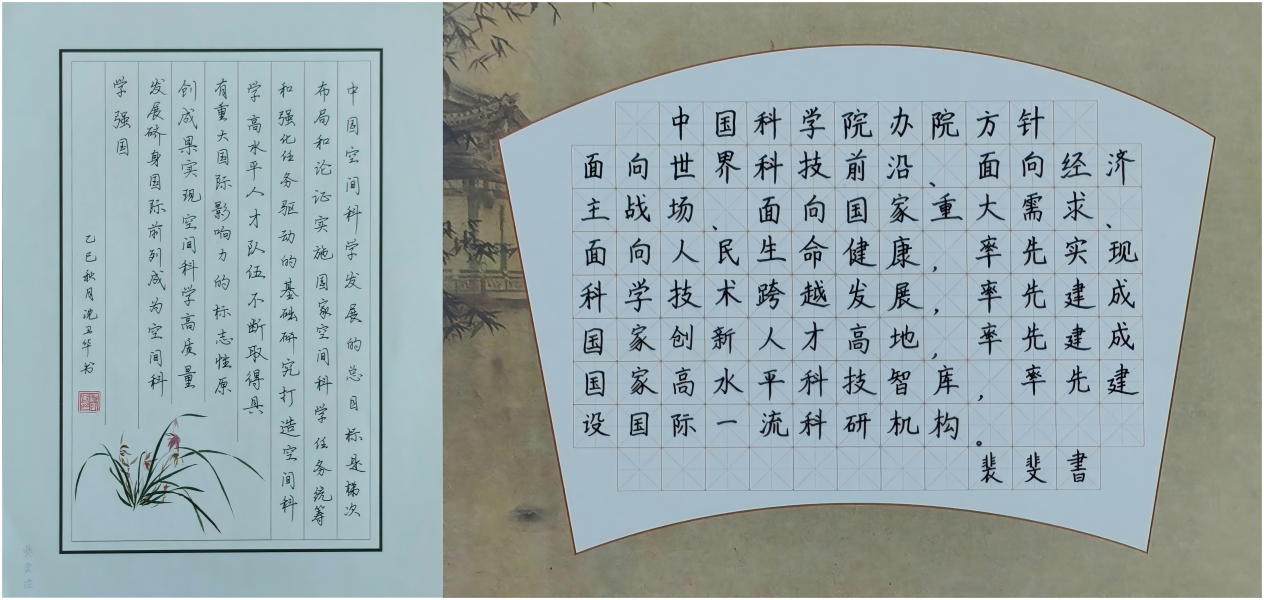 中国空间科学发展的总目标是梯次
布局和论证实施国家空间科学任务统筹
和强化任务驱动的基础研究打造空间科
学高水平人才队伍不断取得具
有重大国际影响力的标志性原
创成果实现空间科学高质量
发展跻身国际前列成为空间科
学强国
乙巳秋月沈卫华书
中国科学院办院方针
面向世界科技前沿、面向经济
主战场、面向国家重大需求、
面向人民生命健康，率先实现
科学技术跨越发展，率先建成
国家创新人才高地，率先建成
国家高水平科技智库，率先建
设国际一流科研机构。
裴斐書